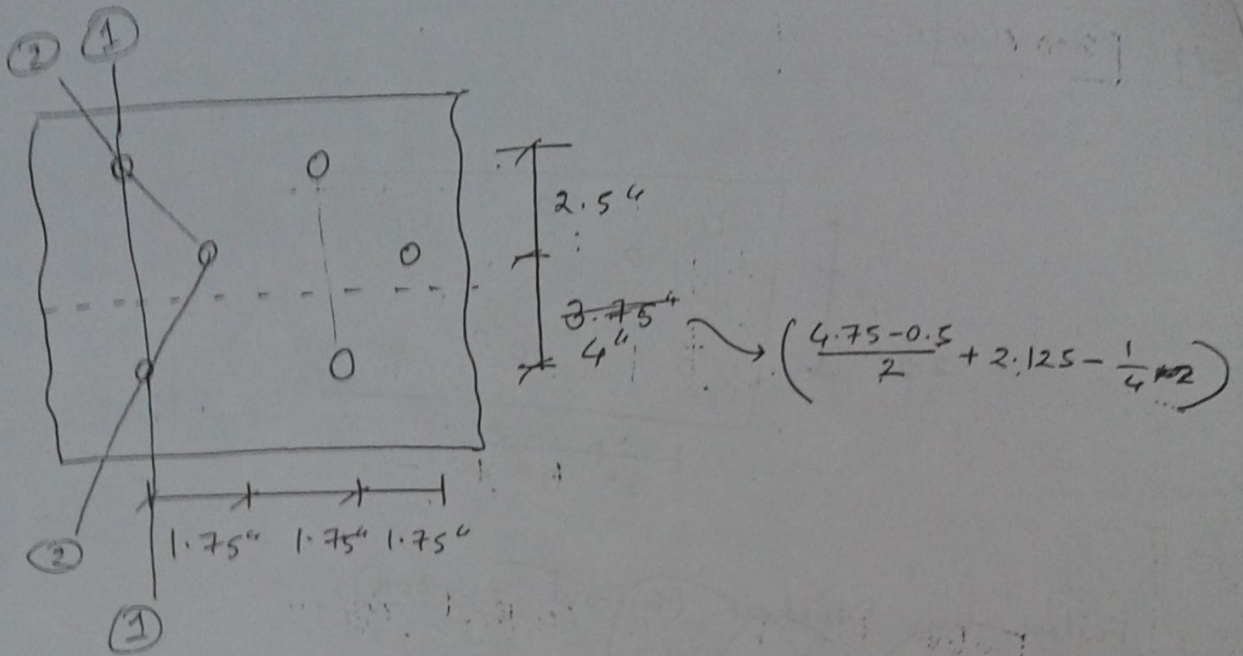 ② ①
2.5"
3.75"
4" → (4.75-0.5/2 + 2.125 - 1/4)
1.75" 1.75" 1.75"
②
①